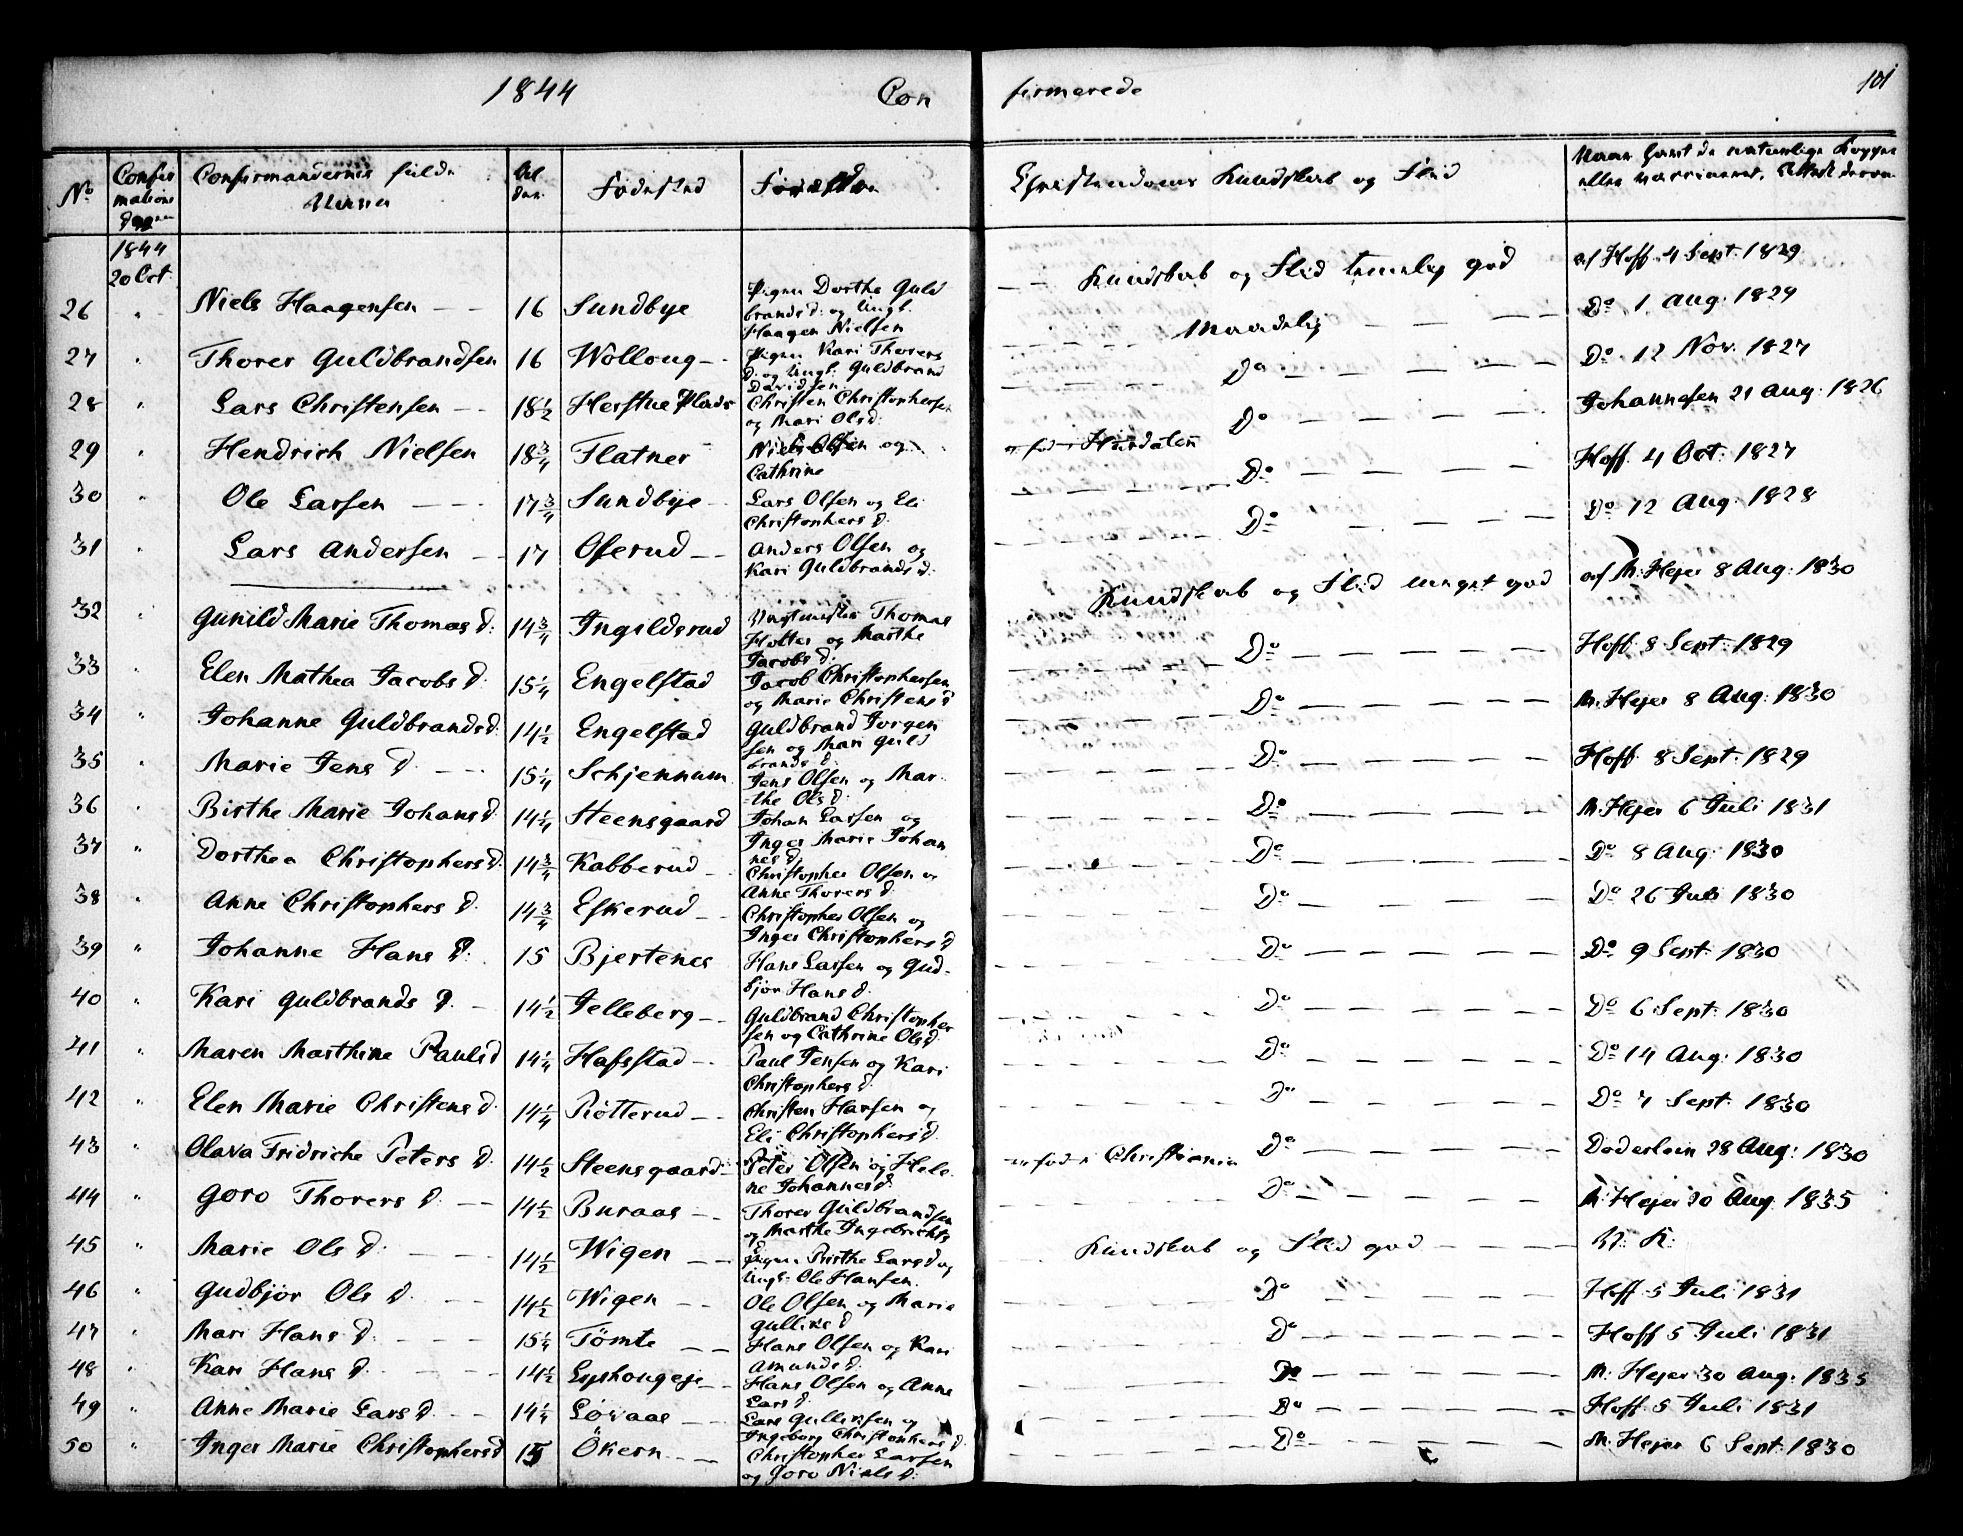 1844 Con firmerede 101
No Confir mations Dagen Confirmandernes fulde Navne Al der Fødested Forældre Christendoms Kundskab og Flid Naar havt de naturlige Kopper eller vaccineret, Attest derom
1844
20 Oct.
26 " Niels Haagensen 16 Sundbye Pigen Dorthe Guld
brands d: og Ungk.
Haagen Nielsen Kundskab og Flid temelig god af Hoff 4 Sept. 1829
27 " Thorer Guldbrandsen 16 Wolloug Pigen Kari Thorers
d: og Ungk: Guldbrand
Davidsen Maadelig Do 1 Aug: 1829
28 " Lars Christensen 18½ Herstue Plads Christen Christophersen
og Mari Olsd: Do Do 12 Nov. 1827
29 " Hendrich Nielsen 18¾ Flatner Niels Olsen og
Cathrine er fød i Hurdalen Do Johannesen 21 Aug: 1826
30 " Ole Larsen 17¾ Sundbye Lars Olsen og Eli
Christophers d. Do Hoff 4 Oct: 1827
31 " Lars Andersen 17 Oserud Anders Olsen og
Kari Guldbrands d: Do Do 12 Aug: 1828
32 " Gunild Marie Thomas d: 14¾ Ingeldsrud Thomas
Holter og Marthe
Jacobs d: Kundskab og Flid meget god af M: Hejer 8 Aug: 1830
33 " Elen Mathea Jacobs d: 15¼ Engelstad Jacob Christophersen
og Marie Christens d Do Hoff 8 Sept: 1829
34 " Johanne Guldbrands d: 14½ Engelstad Guldbrand Jørgen
sen og Mari Guld
brands d: Do M: Hejer 8 Aug: 1830
35 " Marie Jens d 15¼ Schjennum Jens Olsen og Mar
the Ols d: Do Hoff 8 Sept: 1829
36 " Birthe Marie Johans d 14¼ Steensgaard Johan Larsen og
Inger Marie Johan
nes d Do M: Hejer 6 Juli 1831
37 " Dorthea Christophers d. 14¾ Kabberud Christopher Olsen og
Anne Thorers d: Do Do 8 Aug: 1830
38 " Anne Christophers d. 14¾ Eskerud Christopher Olsen og
Inger Christophers d Do Do 26 Juli 1830
39 " Johanne Hans d: 15 Bjertenes Hans Larsen og Gud-
bjør Hans d: Do Do 9 Sept: 1830
40 " Kari Guldbrands d. 14½ Jelleberg Guldbrand Christopher
sen og Cathrine Olsd. Do Do 6 Sept: 1830
41 " Maren Marthine Paulsd 14¼ Hafsstad Paul Jensen og Kari
Christophers d: Do Do 14 Aug: 1830
42 " Elen Marie Christens d. 14¼ Røtterud Christen Hansen og
Eli Christophers d. Do Do 7 Sept: 1830
43 " Olava Fridriche Peters d. 14½ Steensgaard Peter Olsen og Hele
ne Johannes d: er fød i Christiania Do Døderlein 28 Aug: 1830
44 " Goro Thorers d. 14½ Buraas Thorer Guldbrandsen
og Marthe Ingebrichts
d. Do M: Hejer 20 Aug: 1835
45 " Marie Ols d: 14½ Wigen Pigen Birthe Larsd og
Ungk: Ole Hansen. Kundskab og Flid god N: K:
46 " Gudbjør Ols d. 14½ Wigen Ole Olsen og Marie
Gulliks d Do Hoff 5 Juli 1831
47 " Mari Hans d: 15¼ Tømte Hans Olsen og Kari
Amunds d: Do Hoff 5 Juli 1831
48 " Kari Hans d. 14½ Lyshougeje Hans Olsen og Anne
Lars d. Do M: Hejer 30 Aug: 1835
49 " Anne Marie Lars d. 14¼ Løvaas Lars Gulliksen og
Ingeborg Christophers d. Do Hoff 5 Juli 1831
50 " Inger Marie Christophers d 15 Økern Christopher Larsen
og Goro Niels d: Do M: Hejer 6 Sept: 1830